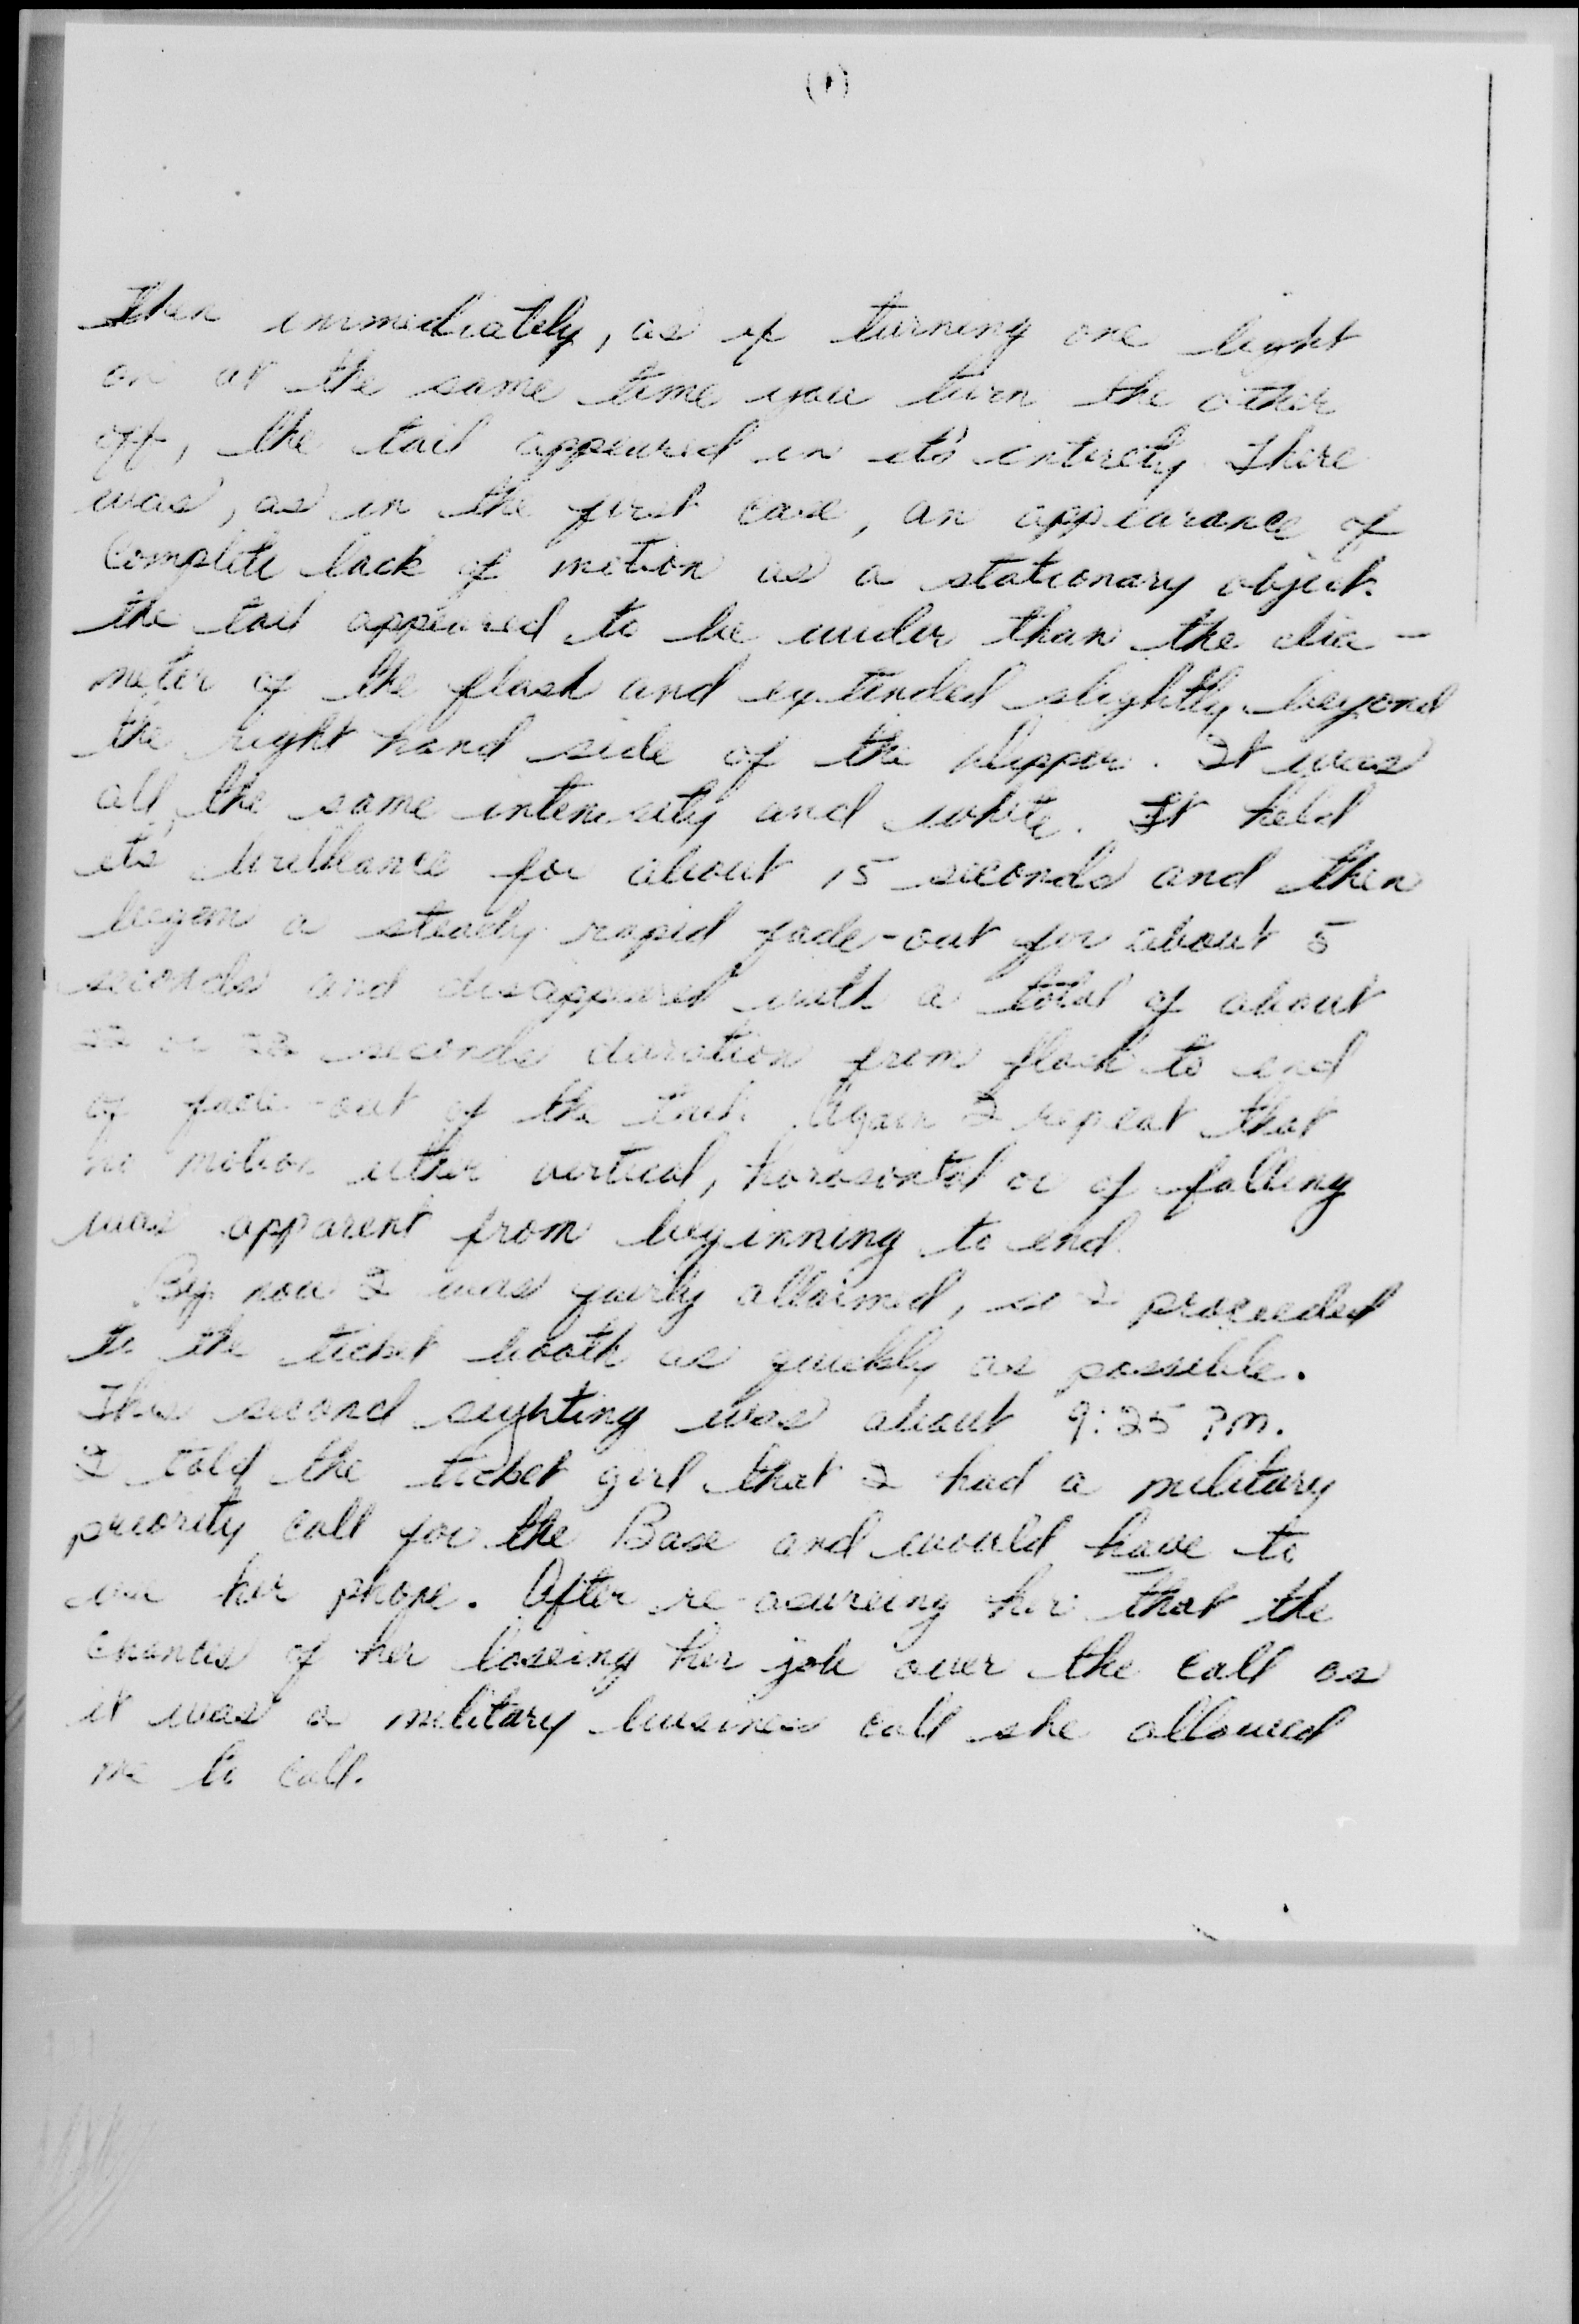 Then immediately, as if turning one light
on at the same time you turn the other
off, the tail appeared in it's entirety There
was, as in the first case, an appearance of
Complete lack of motion as a stationary object.
the tail appeared to be wider than the dia-
meter of the flash and extended slightly beyond
the right hand side of the dipper. It was
all the same intensity and white. It held
it's brilliance for about 15 seconds and then
began a steady rapid fade-out for about 5
seconds and disappeared with a total of about
22 or seconds duration from flash to end
of fade-out of the tail. Again I repeat that
no motion either vertical, horosontal or of falling
was apparent from beginning to end.
By now I was fairly allarmed, so I proceeded
to the ticket booth as quickly as possible.
This second sighting was about 9:25 PM.
I told the ticket girl that I had a military
priority call for the Base and would have to
use her phone. After re-asureing her that the
chances of her loseing her job over the call as
it was a military business call she allowed
me to call.